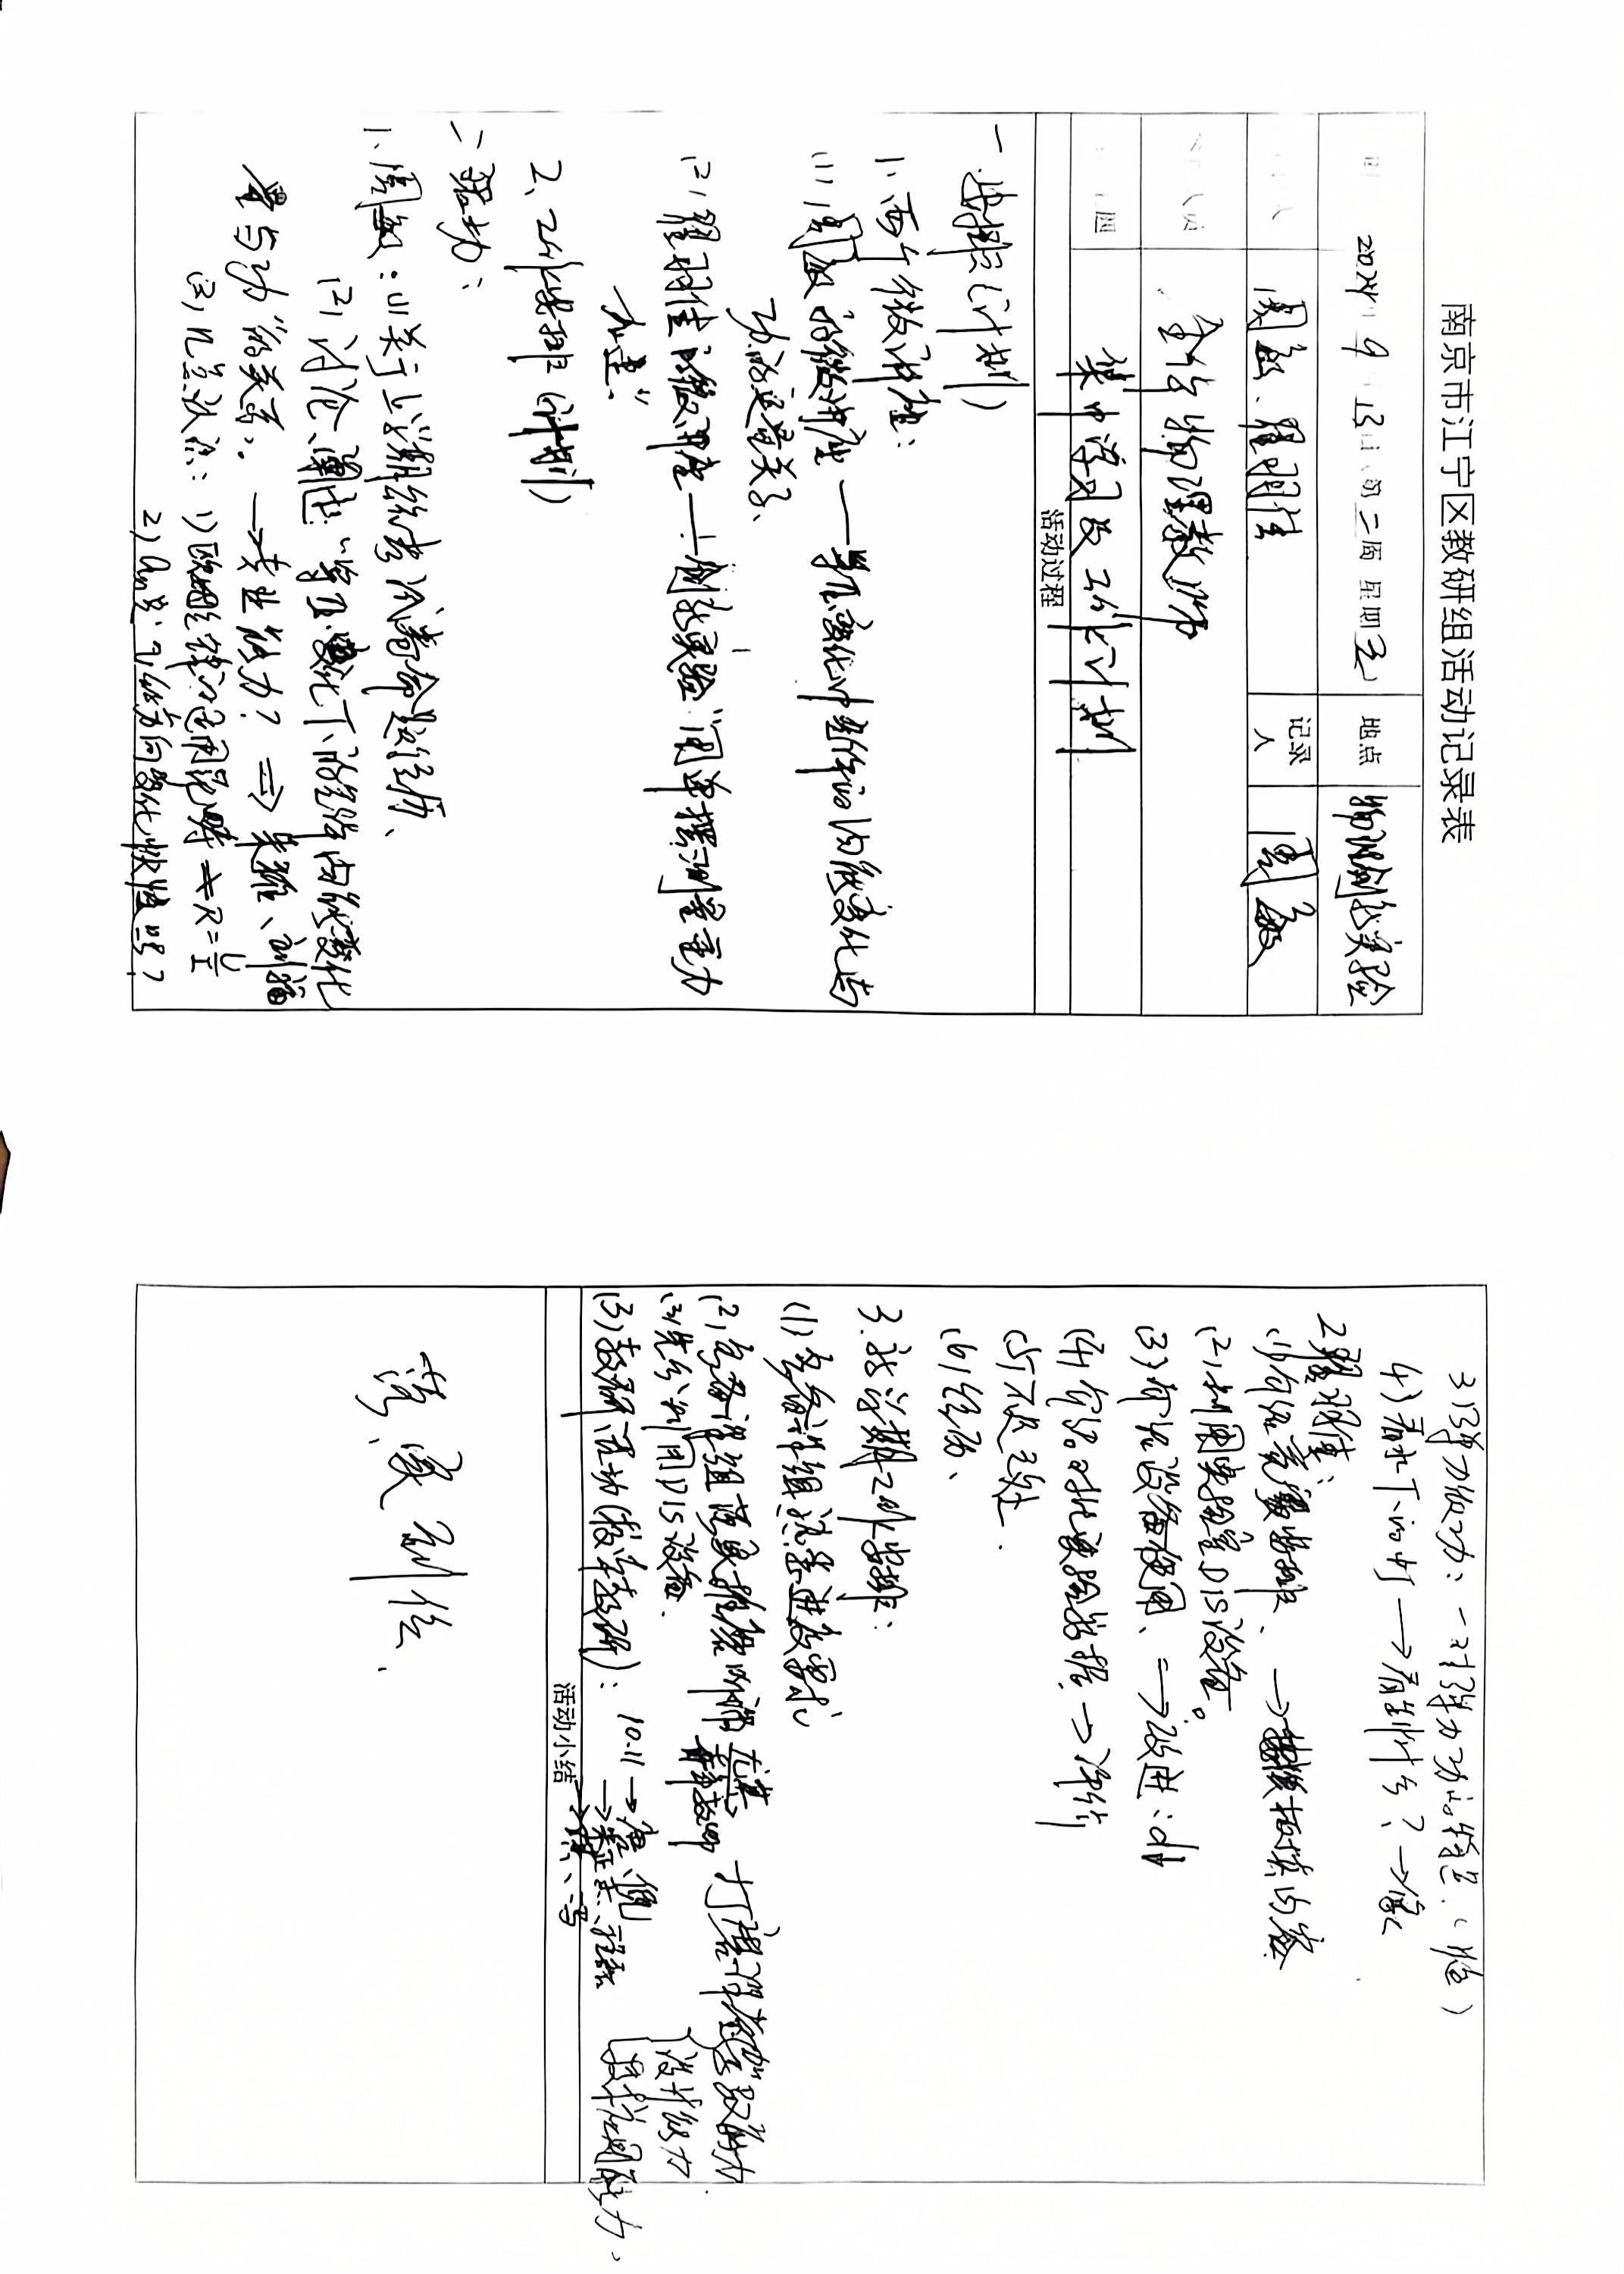 南京市江宁区教研组活动记录表
2024 9 13日(第二周 星期五) 地点 物理创新实验
周敏、翟羽佳 记录人 周敏
人员 全体物理教师
题 集中学习及工作计划
活动过程
一 安排(计划)
1、两个微讲座:
(1) 周敏的微讲座——等压变化中气体的内能变化与
功的定量关系、
(2) 翟羽佳的微讲座——创新实验“用单摆测量重力
加速”
2、工作安排(计划)
二 活动:
1、周敏:(1)关于上学期统考试卷命题经历、
(2) 讨论、阐述“等压变化下的气体内能变化
量与功”的关系. →专业能力? ⇒ 朱雅、刘福
(3) 几点认识: 1)欧姆定律的适用范畴 R=U/I
2) an是v的方向变化快慢吗?
3)弹力做功:一对弹力功的特点.( )
4)看水下的灯→看到什么?→像
2翟羽佳:
(1)介绍竞赛安排. →按模板填内容
(2)利用实验室DIS设备。
(3)介绍设备使用、→改进:d↓
(4)介绍对比实验数据.→评价
(5)不足之处.
(6)经历、
3.新学期工作安排:
(1)各备课组熟悉进度要求
(2)各备课组落实推磨听课 尤其青年教师 打磨课堂教学能力
设计能力
技术应用能力.
(3)充分利用DIS设备.
(3)教研活动(校本教研): 10.11→唐、倪
活动小结
落实到位.